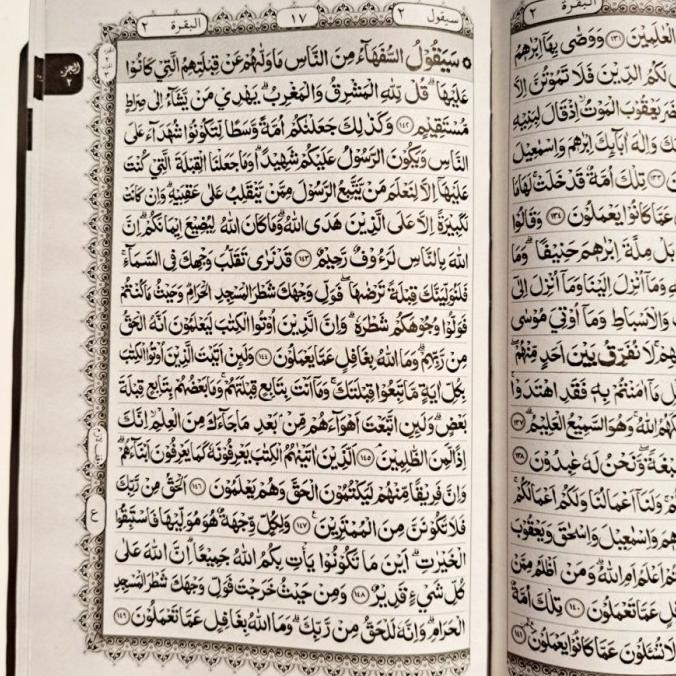 سيقول ٢
١٧
البقرة ٢
سَيَقُولُ السُّفَهَاءُ مِنَ النَّاسِ مَا وَلّٰىهُمْ عَنْ قِبْلَتِهِمُ الَّتِيْ كَانُوْا
عَلَيْهَا ۗ قُلْ لِّلّٰهِ الْمَشْرِقُ وَالْمَغْرِبُ ۗ يَهْدِيْ مَنْ يَّشَاءُ اِلٰى صِرَاطٍ
مُّسْتَقِيْمٍ ١٤٢ وَكَذٰلِكَ جَعَلْنٰكُمْ اُمَّةً وَّسَطًا لِّتَكُوْنُوْا شُهَدَاءَ عَلَى
النَّاسِ وَيَكُوْنَ الرَّسُوْلُ عَلَيْكُمْ شَهِيْدًا ۗ وَمَا جَعَلْنَا الْقِبْلَةَ الَّتِيْ كُنْتَ
عَلَيْهَا اِلَّا لِنَعْلَمَ مَنْ يَّتَّبِعُ الرَّسُوْلَ مِمَّنْ يَّنْقَلِبُ عَلٰى عَقِبَيْهِ ۗ وَاِنْ كَانَتْ
لَكَبِيْرَةً اِلَّا عَلَى الَّذِيْنَ هَدَى اللّٰهُ ۗ وَمَا كَانَ اللّٰهُ لِيُضِيْعَ اِيْمَانَكُمْ ۗ اِنَّ
اللّٰهَ بِالنَّاسِ لَرَءُوْفٌ رَّحِيْمٌ ١٤٣ قَدْ نَرٰى تَقَلُّبَ وَجْهِكَ فِى السَّمَاءِ ۚ
فَلَنُوَلِّيَنَّكَ قِبْلَةً تَرْضٰىهَا ۖ فَوَلِّ وَجْهَكَ شَطْرَ الْمَسْجِدِ الْحَرَامِ ۗ وَحَيْثُ مَا كُنْتُمْ
فَوَلُّوْا وُجُوْهَكُمْ شَطْرَهٗ ۗ وَاِنَّ الَّذِيْنَ اُوْتُوا الْكِتٰبَ لَيَعْلَمُوْنَ اَنَّهُ الْحَقُّ
مِنْ رَّبِّهِمْ ۗ وَمَا اللّٰهُ بِغَافِلٍ عَمَّا يَعْمَلُوْنَ ١٤٤ وَلَىِٕنْ اَتَيْتَ الَّذِيْنَ اُوْتُوا الْكِتٰبَ
بِكُلِّ اٰيَةٍ مَّا تَبِعُوْا قِبْلَتَكَ ۚ وَمَا اَنْتَ بِتَابِعٍ قِبْلَتَهُمْ ۚ وَمَا بَعْضُهُمْ بِتَابِعٍ قِبْلَةَ
بَعْضٍ ۗ وَلَىِٕنِ اتَّبَعْتَ اَهْوَاءَهُمْ مِّنْ بَعْدِ مَا جَاءَكَ مِنَ الْعِلْمِ ۙ اِنَّكَ
اِذًا لَّمِنَ الظّٰلِمِيْنَ ١٤٥ اَلَّذِيْنَ اٰتَيْنٰهُمُ الْكِتٰبَ يَعْرِفُوْنَهٗ كَمَا يَعْرِفُوْنَ اَبْنَاءَهُمْ ۗ
وَاِنَّ فَرِيْقًا مِّنْهُمْ لَيَكْتُمُوْنَ الْحَقَّ وَهُمْ يَعْلَمُوْنَ ١٤٦ اَلْحَقُّ مِنْ رَّبِّكَ
فَلَا تَكُوْنَنَّ مِنَ الْمُمْتَرِيْنَ ١٤٧ وَلِكُلٍّ وِّجْهَةٌ هُوَ مُوَلِّيْهَا فَاسْتَبِقُوا
الْخَيْرٰتِ ۗ اَيْنَ مَا تَكُوْنُوْا يَأْتِ بِكُمُ اللّٰهُ جَمِيْعًا ۗ اِنَّ اللّٰهَ عَلٰى
كُلِّ شَيْءٍ قَدِيْرٌ ١٤٨ وَمِنْ حَيْثُ خَرَجْتَ فَوَلِّ وَجْهَكَ شَطْرَ الْمَسْجِدِ
الْحَرَامِ ۗ وَاِنَّهٗ لَلْحَقُّ مِنْ رَّبِّكَ ۗ وَمَا اللّٰهُ بِغَافِلٍ عَمَّا تَعْمَلُوْنَ ١٤٩
الجزء
٢
ع
البقرة ٢
الْعٰلَمِيْنَ ١٣١ وَوَصّٰى بِهَا اِبْرٰهٖمُ
لَكُمُ الدِّيْنَ فَلَا تَمُوْتُنَّ اِلَّا
يَعْقُوْبَ الْمَوْتُ ۙ اِذْ قَالَ لِبَنِيْهِ
وَاِلٰهَ اٰبَاىِٕكَ اِبْرٰهٖمَ وَاِسْمٰعِيْلَ
تِلْكَ اُمَّةٌ قَدْ خَلَتْ ۚ لَهَا مَا
عَمَّا كَانُوْا يَعْمَلُوْنَ ١٣٤ وَقَالُوْا
بَلْ مِلَّةَ اِبْرٰهٖمَ حَنِيْفًا ۗ وَمَا
وَمَا اُنْزِلَ اِلَيْنَا وَمَا اُنْزِلَ اِلٰى
وَالْاَسْبَاطِ وَمَا اُوْتِيَ مُوْسٰى
لَا نُفَرِّقُ بَيْنَ اَحَدٍ مِّنْهُمْ ۖ
مَا اٰمَنْتُمْ بِهٖ فَقَدِ اهْتَدَوْا ۚ
اللّٰهُ ۚ وَهُوَ السَّمِيْعُ الْعَلِيْمُ ١٣٧
وَّنَحْنُ لَهٗ عٰبِدُوْنَ ١٣٨
وَلَنَا اَعْمَالُنَا وَلَكُمْ اَعْمَالُكُمْ ۚ
وَاِسْمٰعِيْلَ وَاِسْحٰقَ وَيَعْقُوْبَ
اَعْلَمُ اَمِ اللّٰهُ ۗ وَمَنْ اَظْلَمُ مِمَّنْ
عَمَّا تَعْمَلُوْنَ ١٤٠ تِلْكَ اُمَّةٌ
تُسْـَٔلُوْنَ عَمَّا كَانُوْا يَعْمَلُوْنَ ١٤١